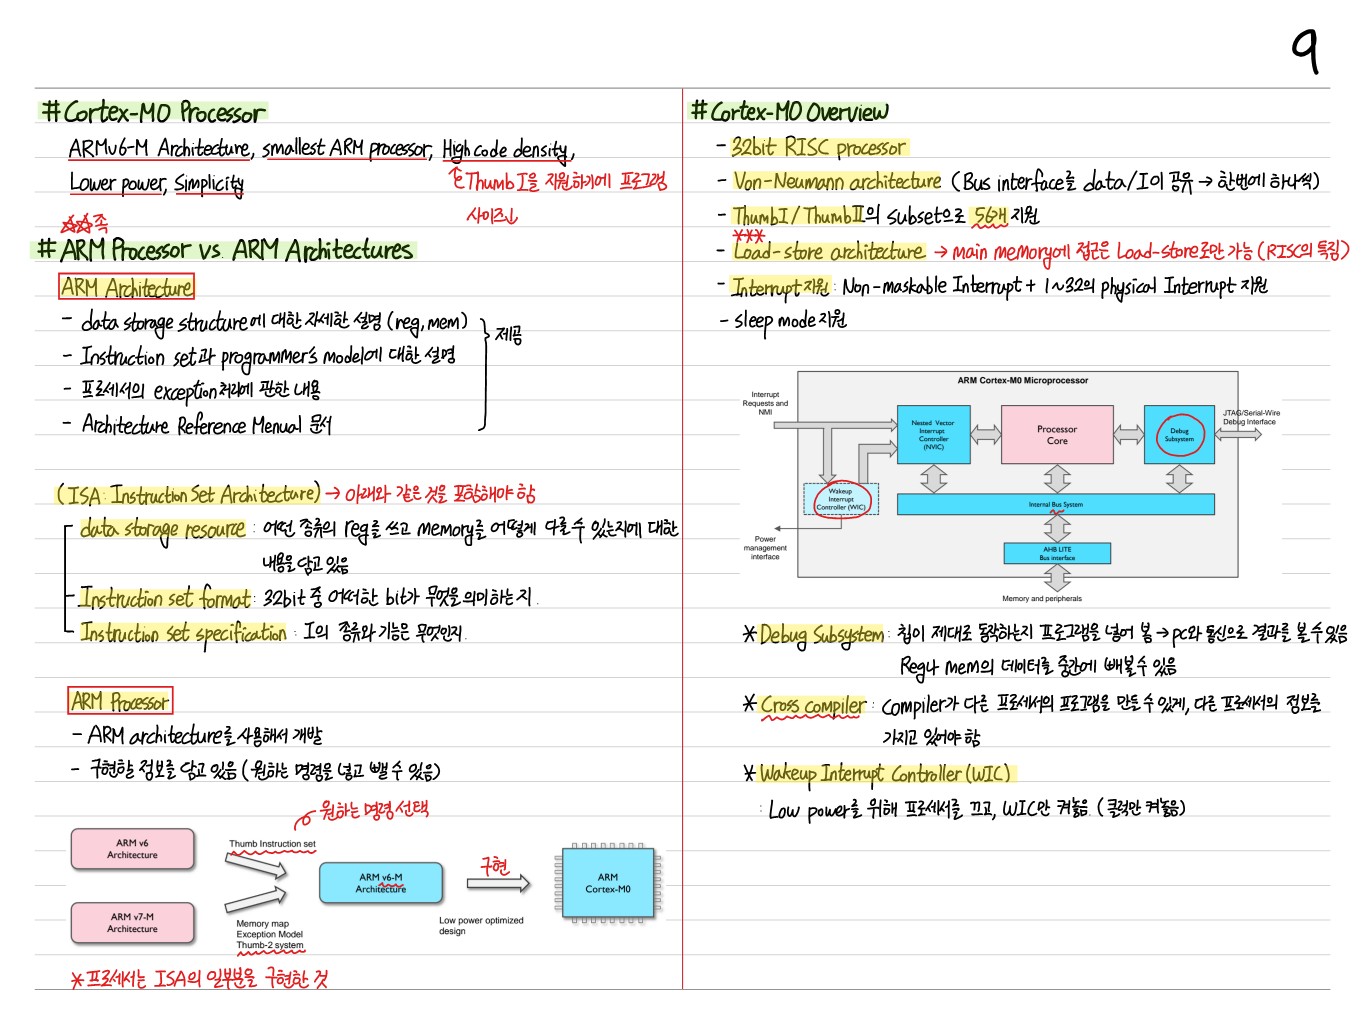 9
#Cortex-M0 Processor
ARMv6-M Architecture, smallest ARM processor, High code density,
Lower power, Simplicity
Thumb I을 지원하기에 프로그램
사이즈↓
☆☆족
# ARM Processor vs. ARM Architectures
ARM Architecture
- data storage structure에 대한 자세한 설명 (reg, mem)
- Instruction set과 programmer's model에 대한 설명
- 프로세서의 exception처리에 관한 내용
- Architecture Reference Menual 문서
제공
(ISA: Instruction Set Architecture) → 아래와 같은 것을 포함해야 함
data storage resource : 어떤 종류의 reg를 쓰고 memory를 어떻게 다룰 수 있는지에 대한
내용을 담고 있음
Instruction set format : 32bit 중 어떠한 bit가 무엇을 의미하는지.
Instruction set specification : I의 종류와 기능은 무엇인지.
ARM Processor
- ARM architecture를 사용해서 개발
- 구현할 정보를 담고 있음 (원하는 명령을 넣고 뺄 수 있음)
원하는 명령 선택
ARM v6
Architecture
Thumb Instruction set
ARM v6-M
Architecture
구현
ARM
Cortex-M0
ARM v7-M
Architecture
Memory map
Exception Model
Thumb-2 system
Low power optimized
design
* 프로세서는 ISA의 일부분을 구현한 것
#Cortex-M0 Overview
- 32bit RISC processor
- Von-Neumann architecture (Bus interface를 data/I이 공유 → 한번에 하나씩)
- ThumbI / ThumbII의 subset으로 56개 지원
***
- Load-store architecture → main memory에 접근은 Load-store로만 가능 (RISC의 특징)
- Interrupt 지원 : Non-maskable Interrupt + 1~32의 physical Interrupt 지원
- sleep mode 지원
ARM Cortex-M0 Microprocessor
Interrupt
Requests and
NMI
Nested Vector
Interrupt
Controller
(NVIC)
Processor
Core
Debug
Subsystem
JTAG/Serial-Wire
Debug Interface
Wakeup
Interrupt
Controller (WIC)
Internal Bus System
Power
management
interface
AHB LITE
Bus interface
Memory and peripherals
* Debug Subsystem : 칩이 제대로 동작하는지 프로그램을 넣어 봄 → pc와 통신으로 결과를 볼 수 있음
Reg나 mem의 데이터를 중간에 빼볼 수 있음
* Cross compiler : Compiler가 다른 프로세서의 프로그램을 만들 수 있게, 다른 프로세서의 정보를
가지고 있어야 함
* Wakeup Interrupt Controller (WIC)
: Low power를 위해 프로세서를 끄고, WIC만 켜놓음. (클럭만 켜놓음)